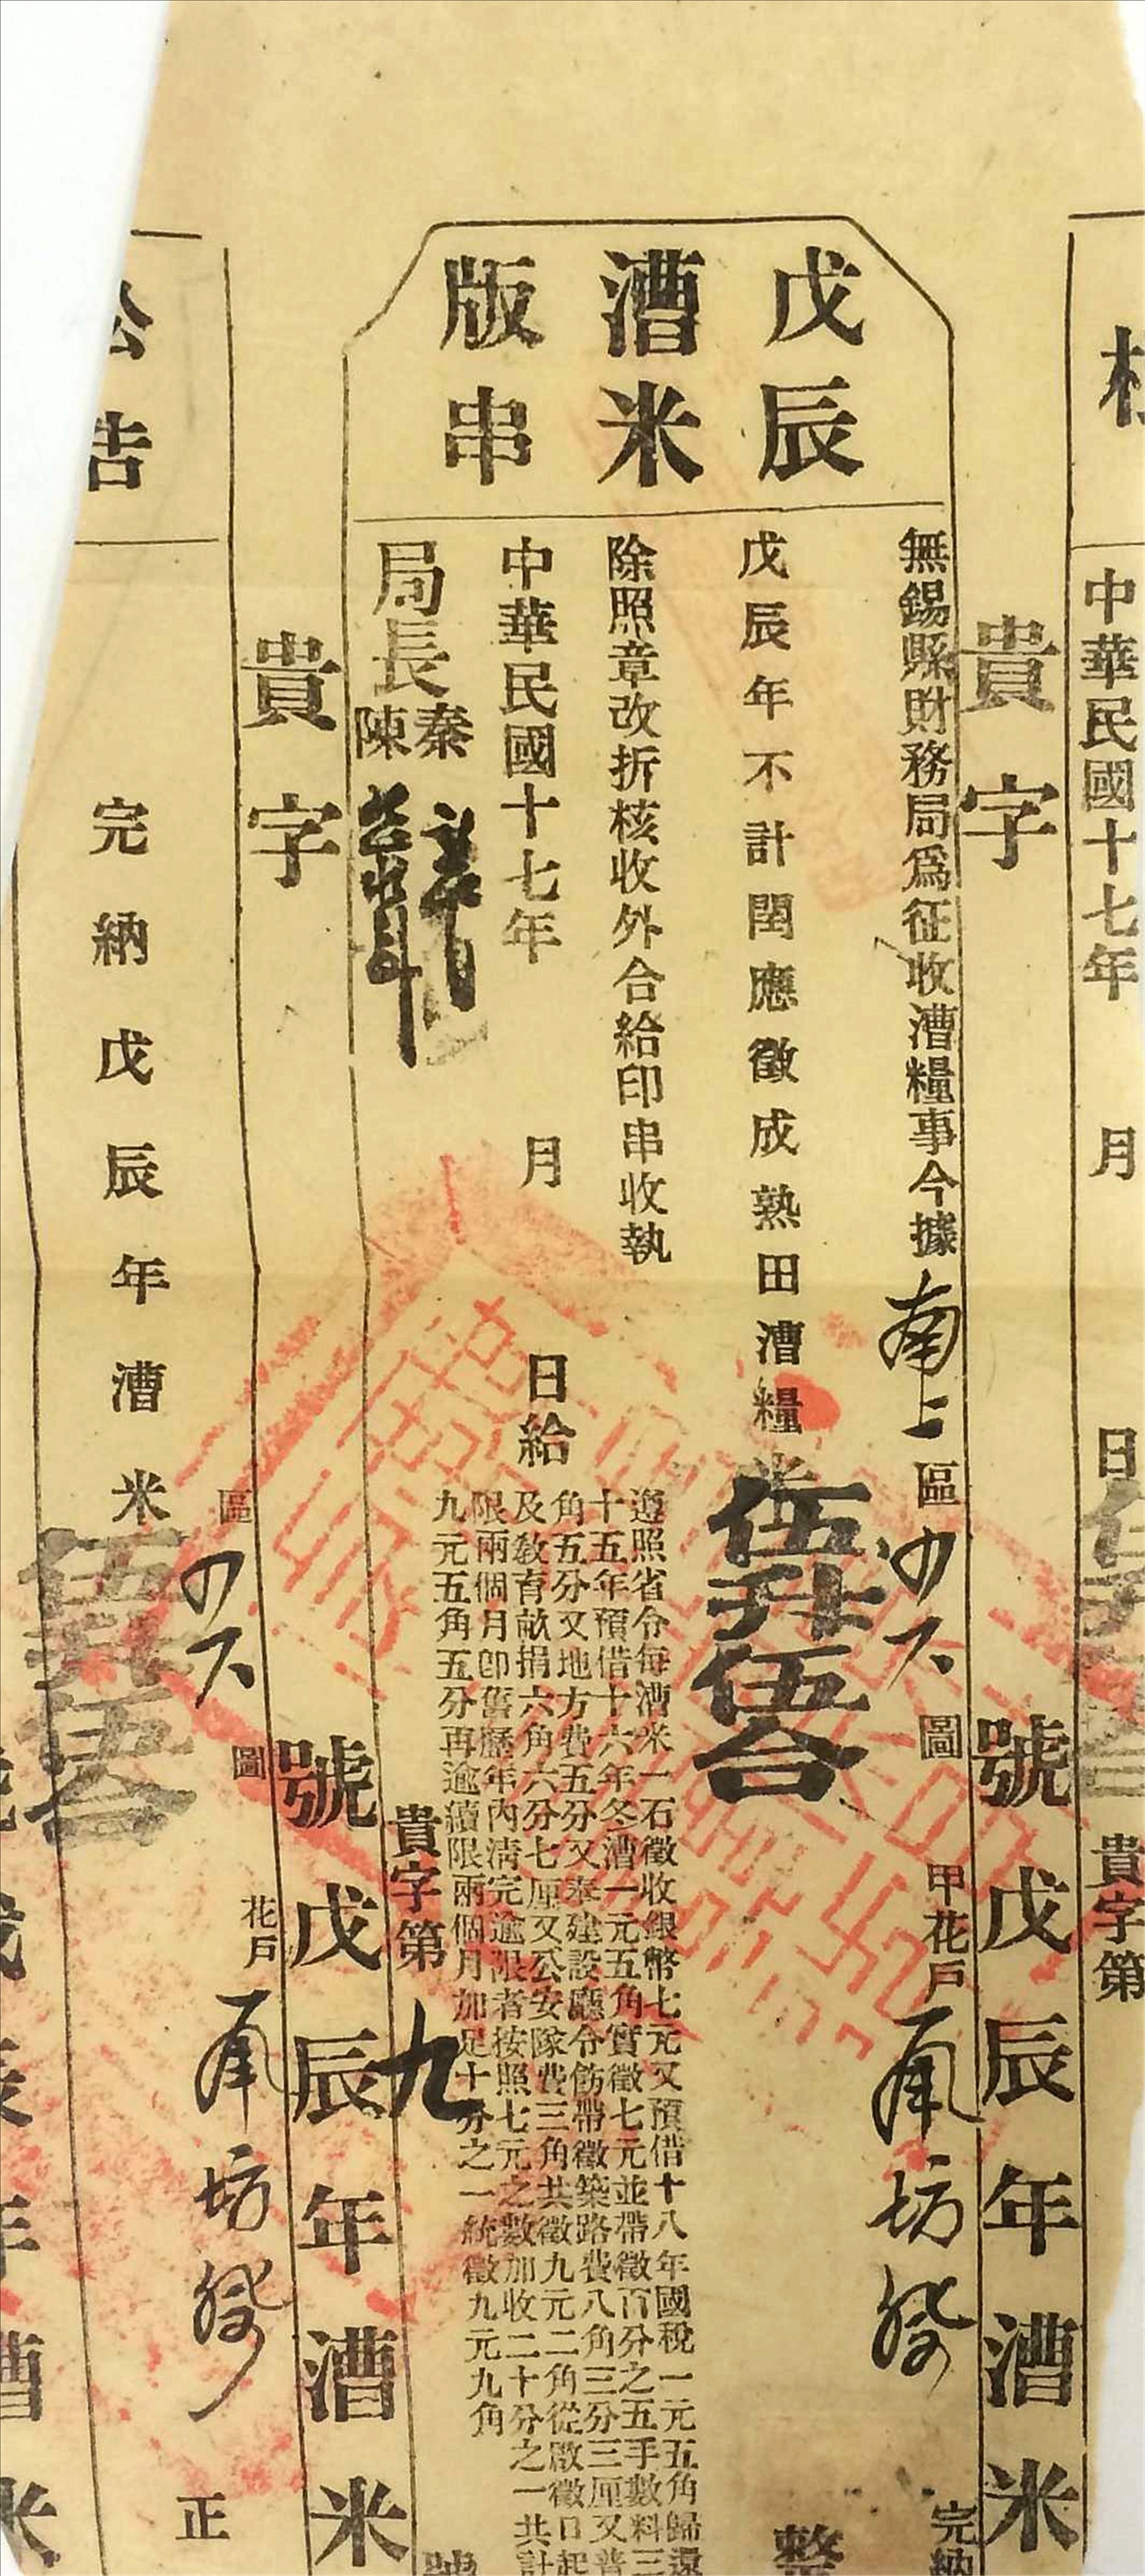 中華民國十七年 月 日
貴字第
貴字 號戊辰年漕米
戊辰
漕米
版串
無錫縣財務局爲征收漕糧事今據南二區 圖 甲花戶 坊 完納
戊辰年不計閏應徵成熟田漕糧米伍升伍合 整
除照章改折核收外合給印串收執
遵照省令每漕米一石徵收銀幣七元又預借十八年國稅一元五角歸還
十五年預借十六年冬漕一元五角實徵七元並帶徵百分之五手數料三
角五分又地方費五分又奉建設廳令飭帶徵築路費八角三分三厘又普
及教育畝捐六角六分七厘又公安隊費三角共徵九元二角從啟徵日起
限兩個月卽舊歷年內清完逾限者按照七元之數加收二十分之一共計
九元五角五分再逾續限兩個月加足十分之一統徵九元九角
中華民國十七年 月 日給
局長 秦 陳
貴字第九 號
貴字 號戊辰年漕米
公告
區 圖 花戶 坊
完納戊辰年漕米伍升伍合 正
號戊辰年漕米